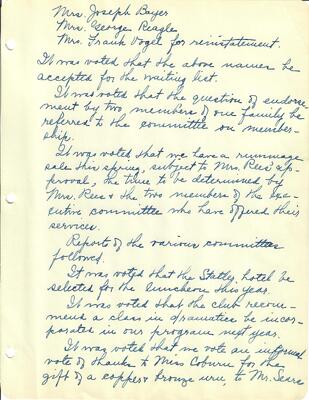 Mrs. Joseph Bayer
Mrs. George Reagle
Mrs. Frank Vogel for reinstatement.
It was voted that the above names be
accepted for the waiting list.
It was voted that the question of endorse-
ment by two members of one family be
referred to the committee on member-
ship.
It was voted that we have a rummage
sale this spring, subject to Mrs. Rees' ap-
proval, the time to be determined by
Mrs. Rees & the two members of the Exe-
cutive committee who have offered their
services.
Reports of the various committees
followed.
It was voted that the Statler hotel be
selected for the luncheon this year.
It was voted that the club recom-
mend a class in dramatics be incor-
porated in our program next year.
It was voted that we vote an informal
vote of thanks to Miss Coburn for the
gift of a copper & bronze urn to Mr. Sears